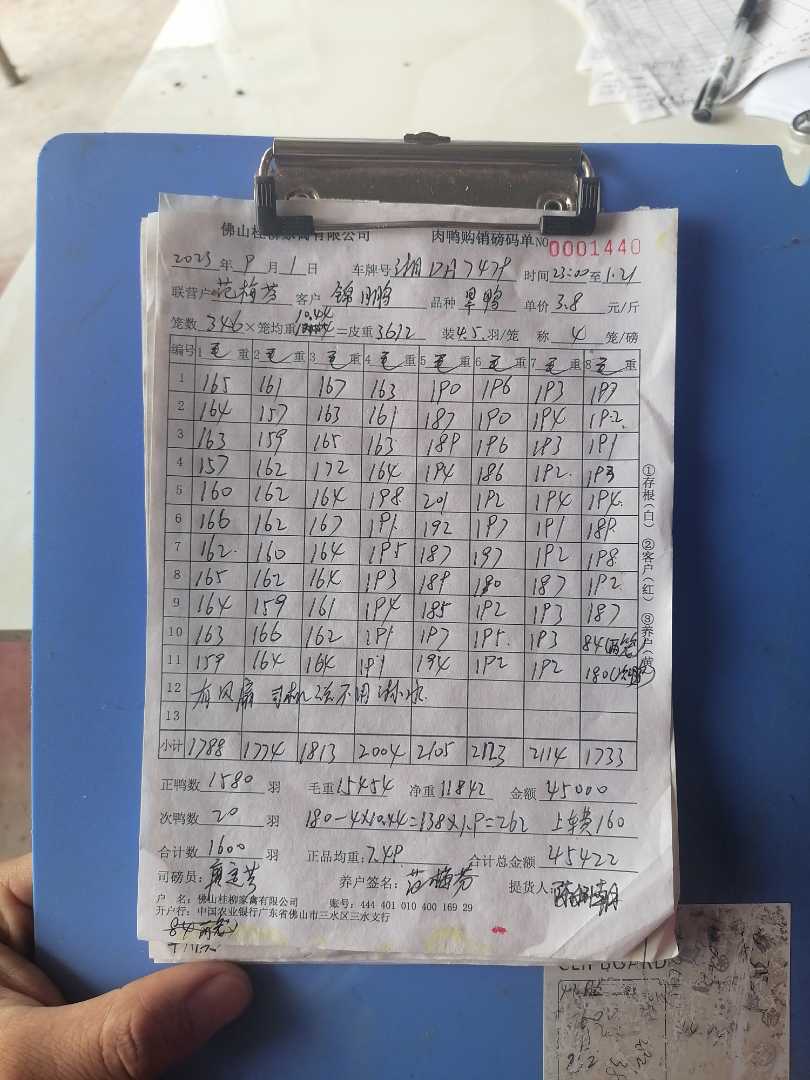 佛山桂柳家禽有限公司 肉鸭购销磅码单 NO 0001440
2023 年 9 月 1 日 车牌号 时间 23:00 至 1:21
联营户 范梅芳 客户 锦 品种 旱鸭 单价 3.8 元/斤
笼数 346 × 笼均重 10.44 = 皮重 3612 装 4.5 羽/笼 称 4 笼/磅
编号 1 毛 重 2 毛 重 3 毛 重 4 毛 重 5 毛 重 6 毛 重 7 毛 重 8 毛 重
1 165 161 167 163 190 196 193 197
2 164 157 163 161 187 190 194 192
3 163 159 165 163 189 196 193 191
4 157 162 172 164 194 186 192 193
5 160 162 164 198 201 192 194 194
6 166 162 167 191 192 197 191 189
7 162 160 164 195 187 197 192 198
8 165 162 164 193 189 180 187 192
9 164 159 161 194 185 192 193 187
10 163 166 162 191 197 195 193 84(两笼)
11 159 164 164 191 194 192 192 180(次鸭)
12 有风扇 司机 不用淋水
13
小计 1788 1774 1813 2004 2105 2123 2114 1733
正鸭数 1580 羽 毛重 15454 净重 11842 金额 45000
次鸭数 20 羽 180-4×10.44=138×1.9=262 上车费160
合计数 1600 羽 正品均重: 7.49 合计总金额 45422
司磅员: 养户签名: 范梅芳 提货人:
户 名: 佛山桂柳家禽有限公司 账号: 444 401 010 400 169 29
开户行: 中国农业银行广东省佛山市三水区三水支行
84 两笼
①存根(白) ②客户(红) ③养户(黄)
CLIPBOARD